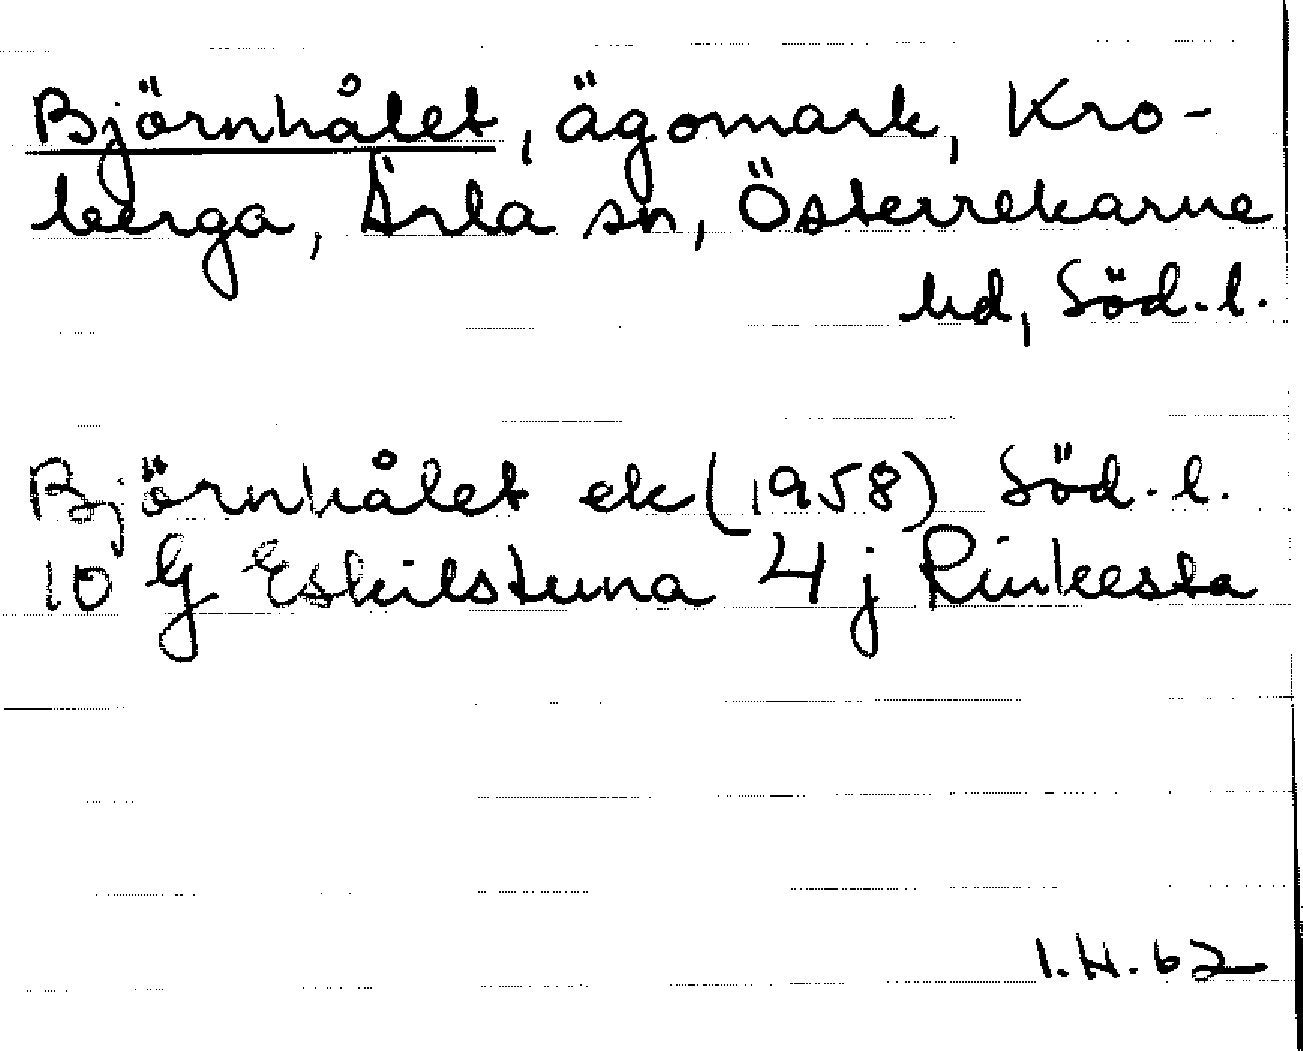 Björnhålet, ägomark, Kro-
berga, Ärla sn, Österrekarne
hd, Söd. l.
Björnhålet ek (1958) Söd. l.
10 G Eskilstuna 4 j Rinkesta
I.H. 62